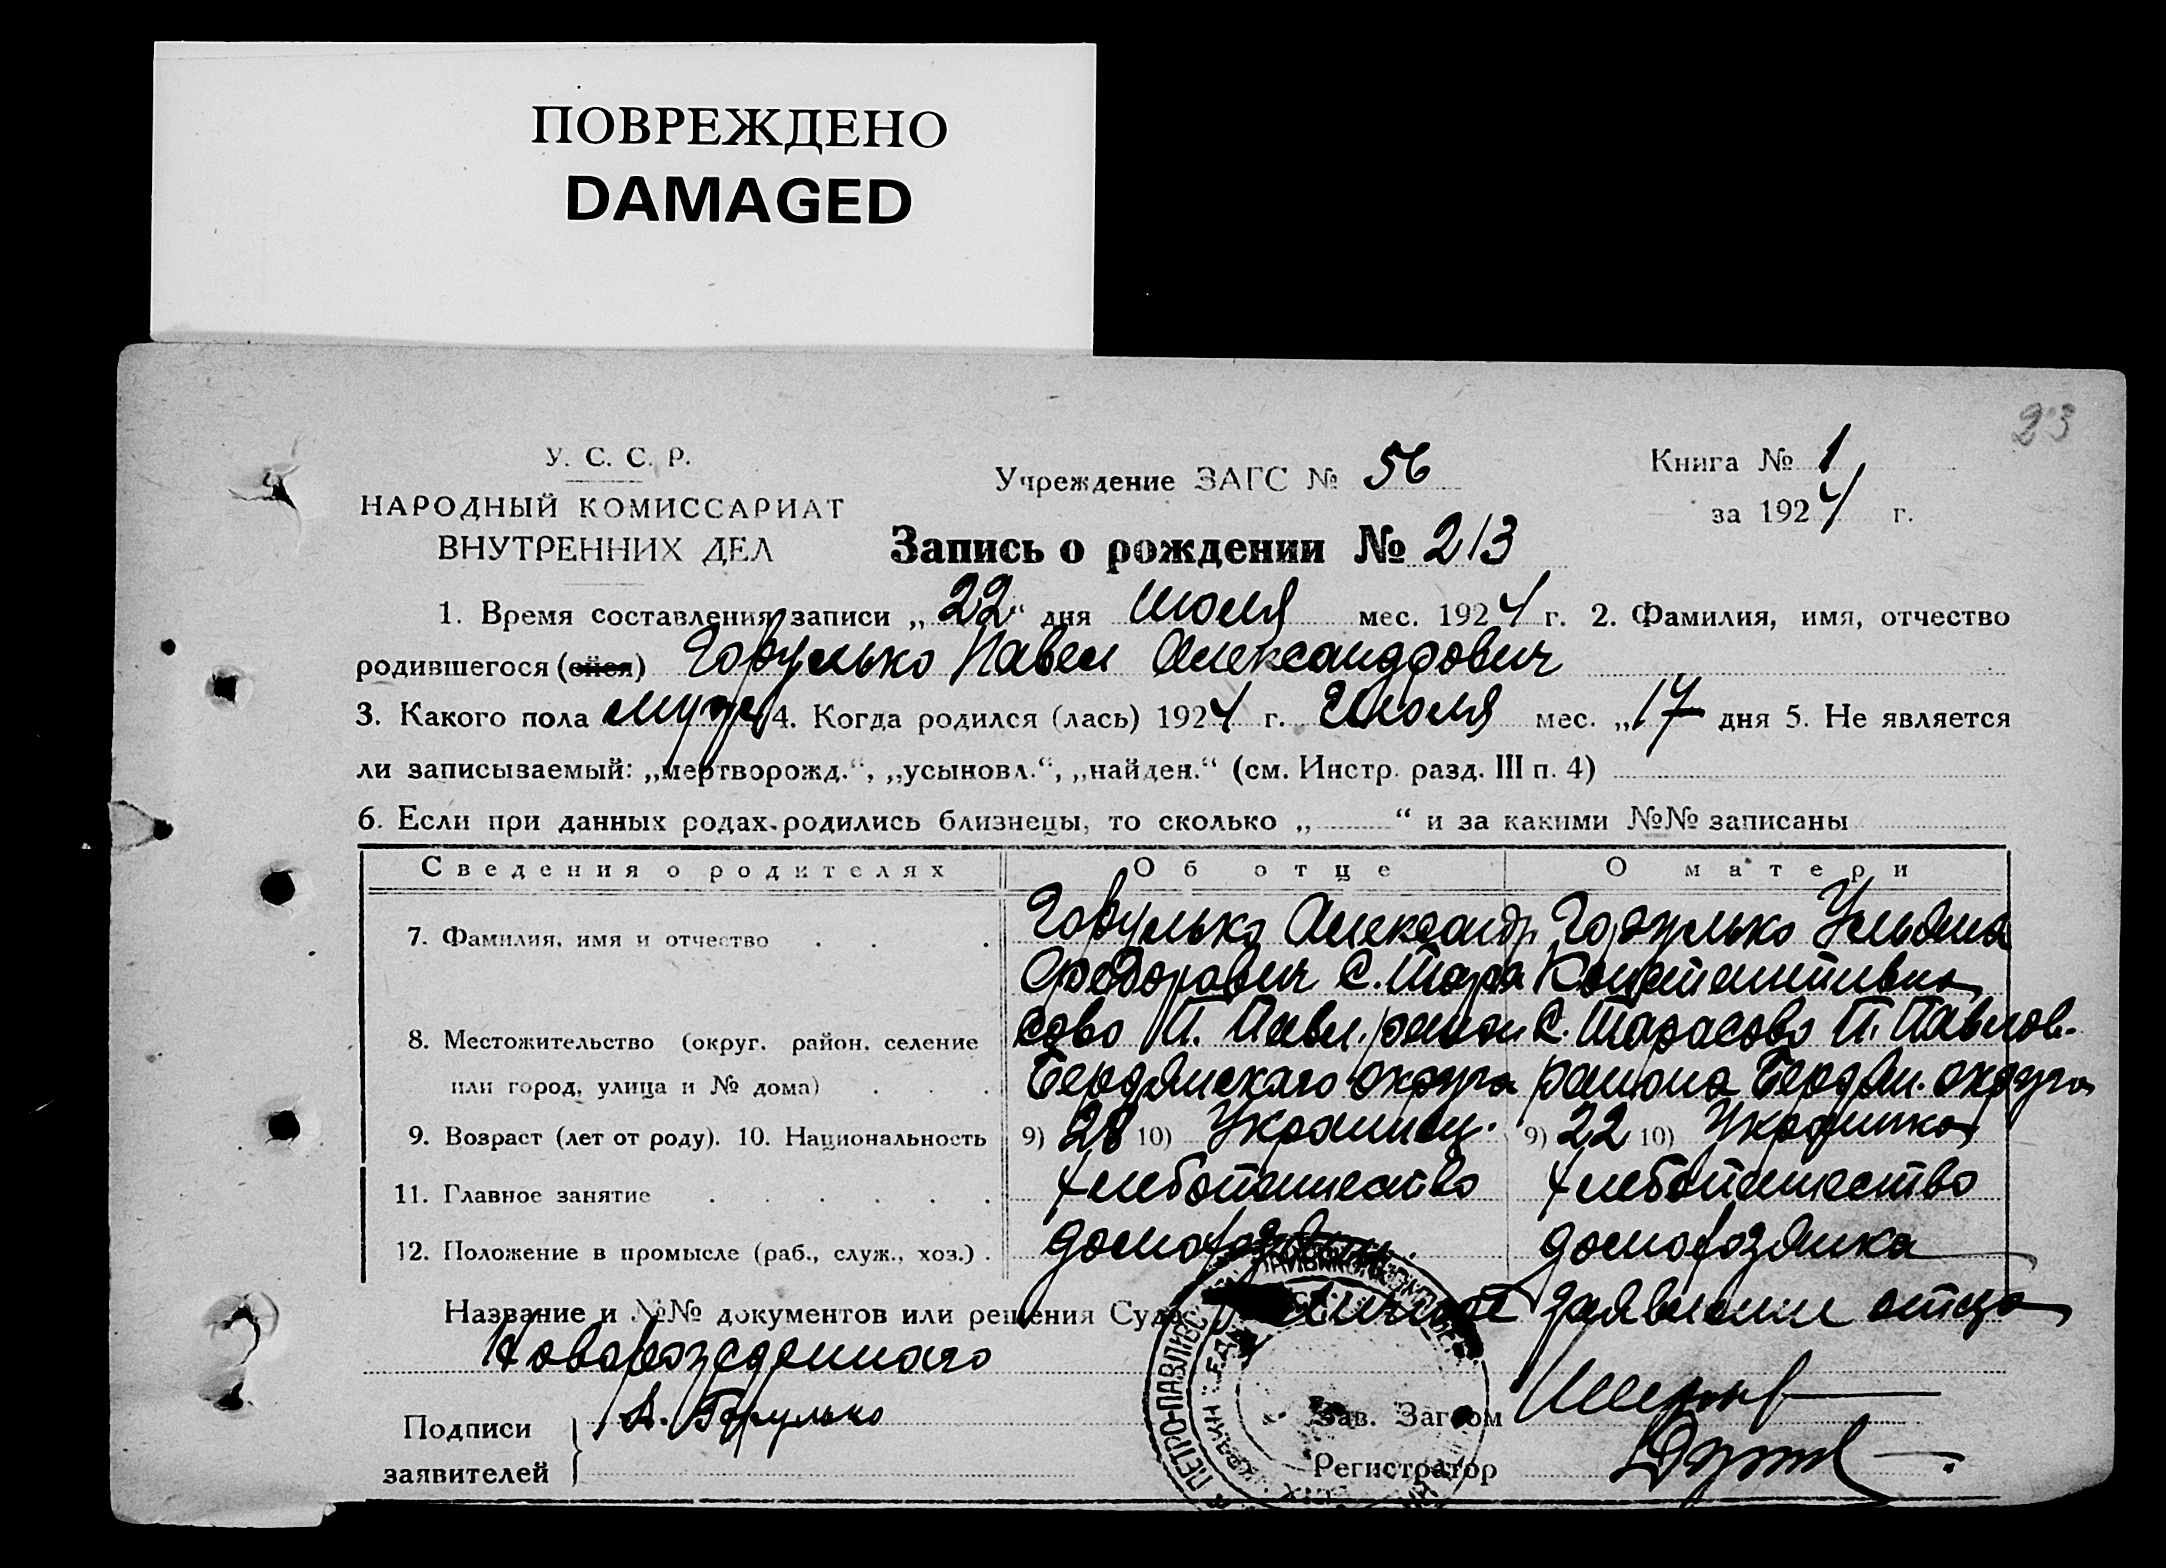 ПОВРЕЖДЕНО
DAMAGED
23
У. С. С. Р.
НАРОДНЫЙ КОМИССАРИАТ
ВНУТРЕННИХ ДЕЛ
Учреждение ЗАГС № 56
Книга № 1
за 1924 г.
Запись о рождении № 213
1. Время составления записи „22“ дня Июля мес. 1924 г. 2. Фамилия, имя, отчество
родившегося (ейся) Горулько Павел Александрович
3. Какого пола муж 4. Когда родился (лась) 1924 г. Июля мес. „17 дня 5. Не является
ли записываемый: „мертворожд.“, „усыновл.“, „найден.“ (см. Инстр. разд. III п. 4)
6. Если при данных родах родились близнецы, то сколько „ “ и за какими №№ записаны
Сведения о родителях Об отце О матери
7. Фамилия, имя и отчество
Горулько Александр
Федорович С. Тара
сово П. Павл. район
Бердянскаго округа
Горулько Ульяна
С. Тарасово П. Павлов.
района Бердян. округа
8. Местожительство (округ, район, селение
или город, улица и № дома)
9. Возраст (лет от роду). 10. Национальность 9) 28 10) Украинец. 9) 22 10) Украинка
11. Главное занятие хлебопашество хлебопашество
12. Положение в промысле (раб., служ., хоз.) домохозяин. домохозяйка
Название и №№ документов или решения Суда Личное заявление отца
Новорожденного
Подписи
заявителей
А. Горулько
Зав. Загсом
Регистратор
ПЕТРО-ПАВЛІВС